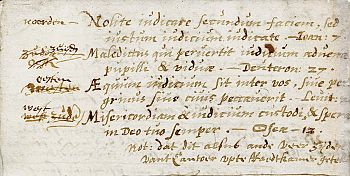 noorden — Nolite iudicare secundum faciem, sed
iustum iudicium iudicate. — Ioan: 7
zuide Maledictus qui pervertit iudicium advenę
pupilli & viduę. — Deuteron: 27.
oosten Æquum iudicium sit inter vos, sive pe
grinus sive civis peccaverit. — Levit:
west Misericordiam & iudicium custodi, & sper
in Deo tuo semper. — Osеę. 12.
Not: dat dit alsus ande vier zyden
vant Cantoor upte Raedtkamer